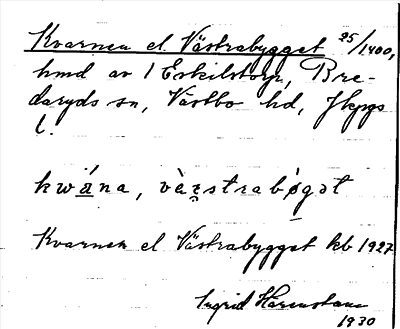 Kvarnen el. Västrabygget 25/1400,
hmd av 1 Eskilstorp, Bre-
daryds sn, Västbo hd, Jkpgs
l.
kwána, vàʂstrabǿgət
Kvarnen el Västrabygget kb 1927
Ingrid
1930